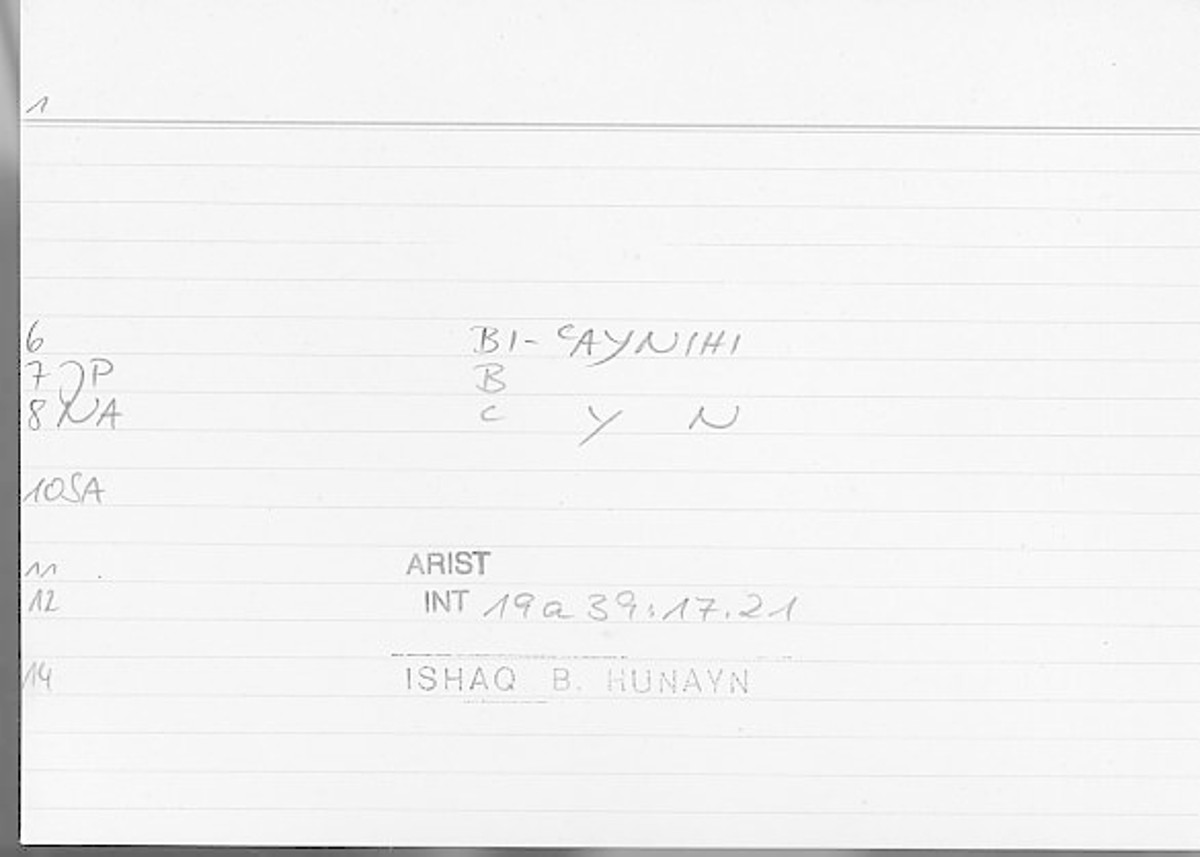 1
6 BI-ʿAYNIHI
7 P B
8 NA ʿ Y N
10SA
11 ARIST
12 INT 19a39:17.21
14 ISHAQ B. HUNAYN